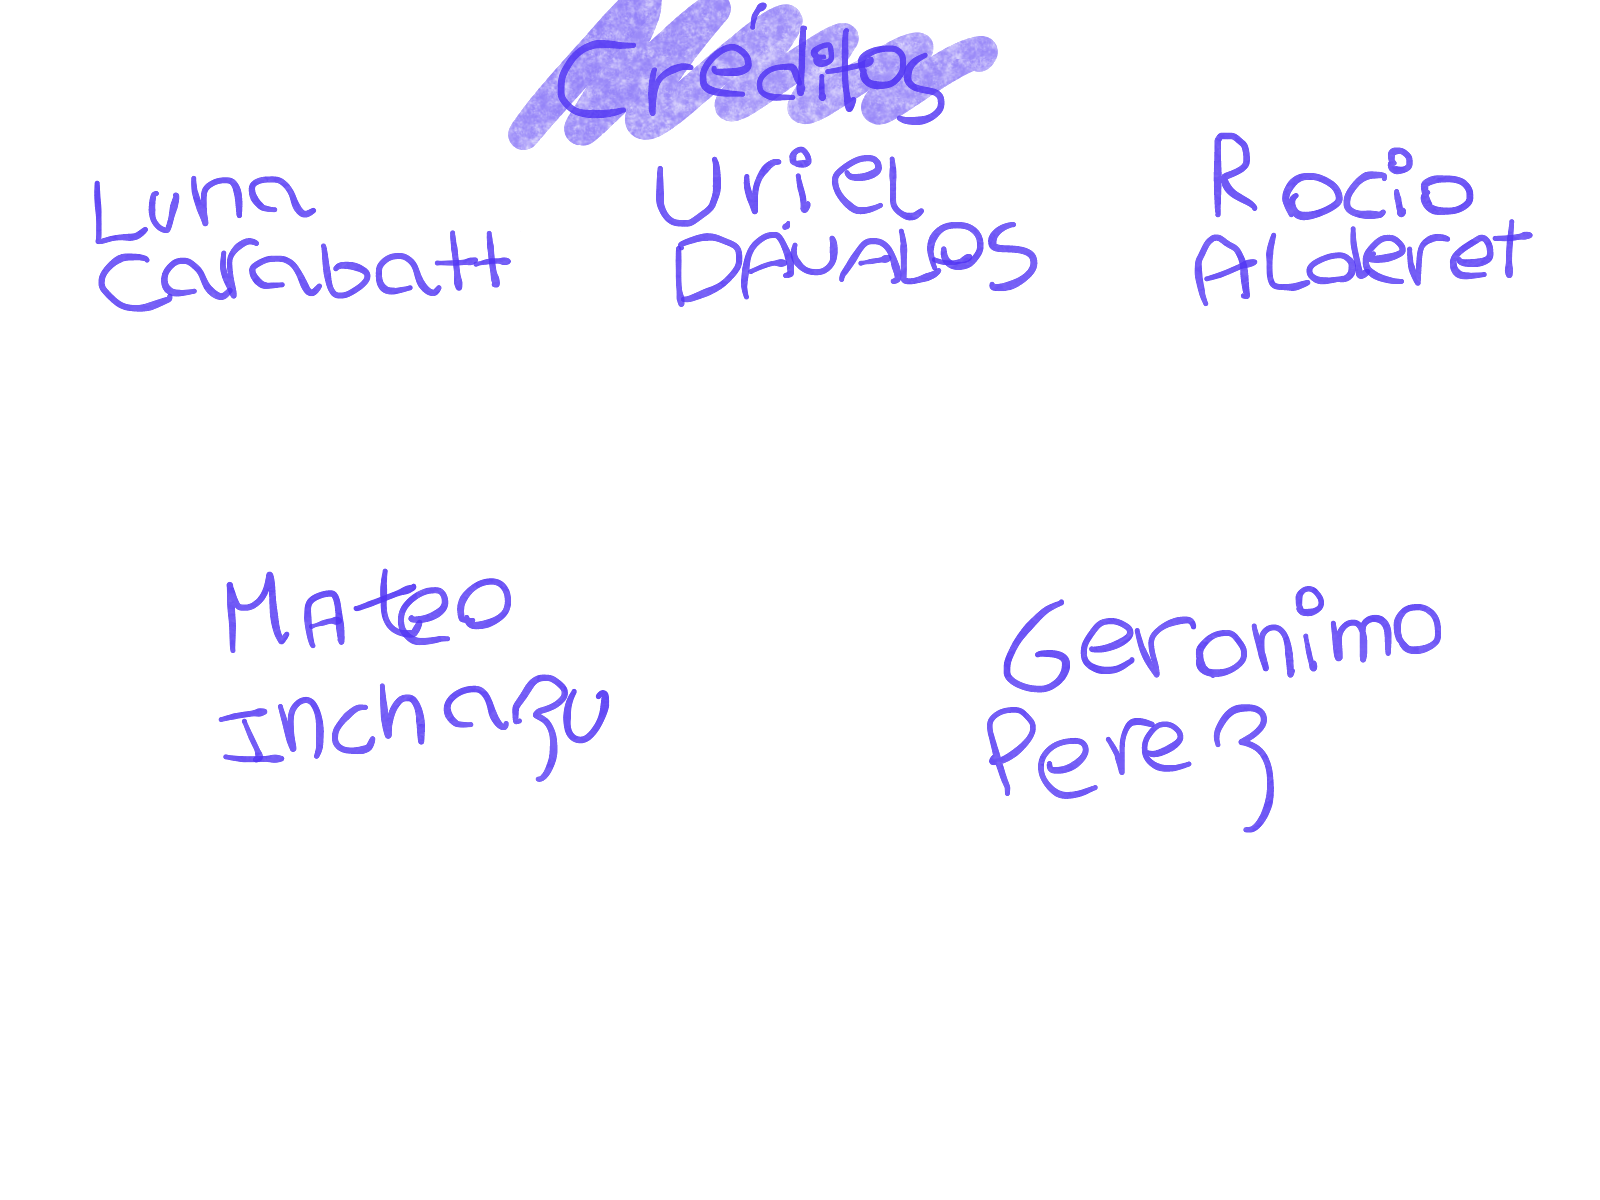 Créditos
Luna
Carabatt
Uriel
DÁVALOS
Rocio
ALderet
Mateo
Inchazu
Geronimo
Perez